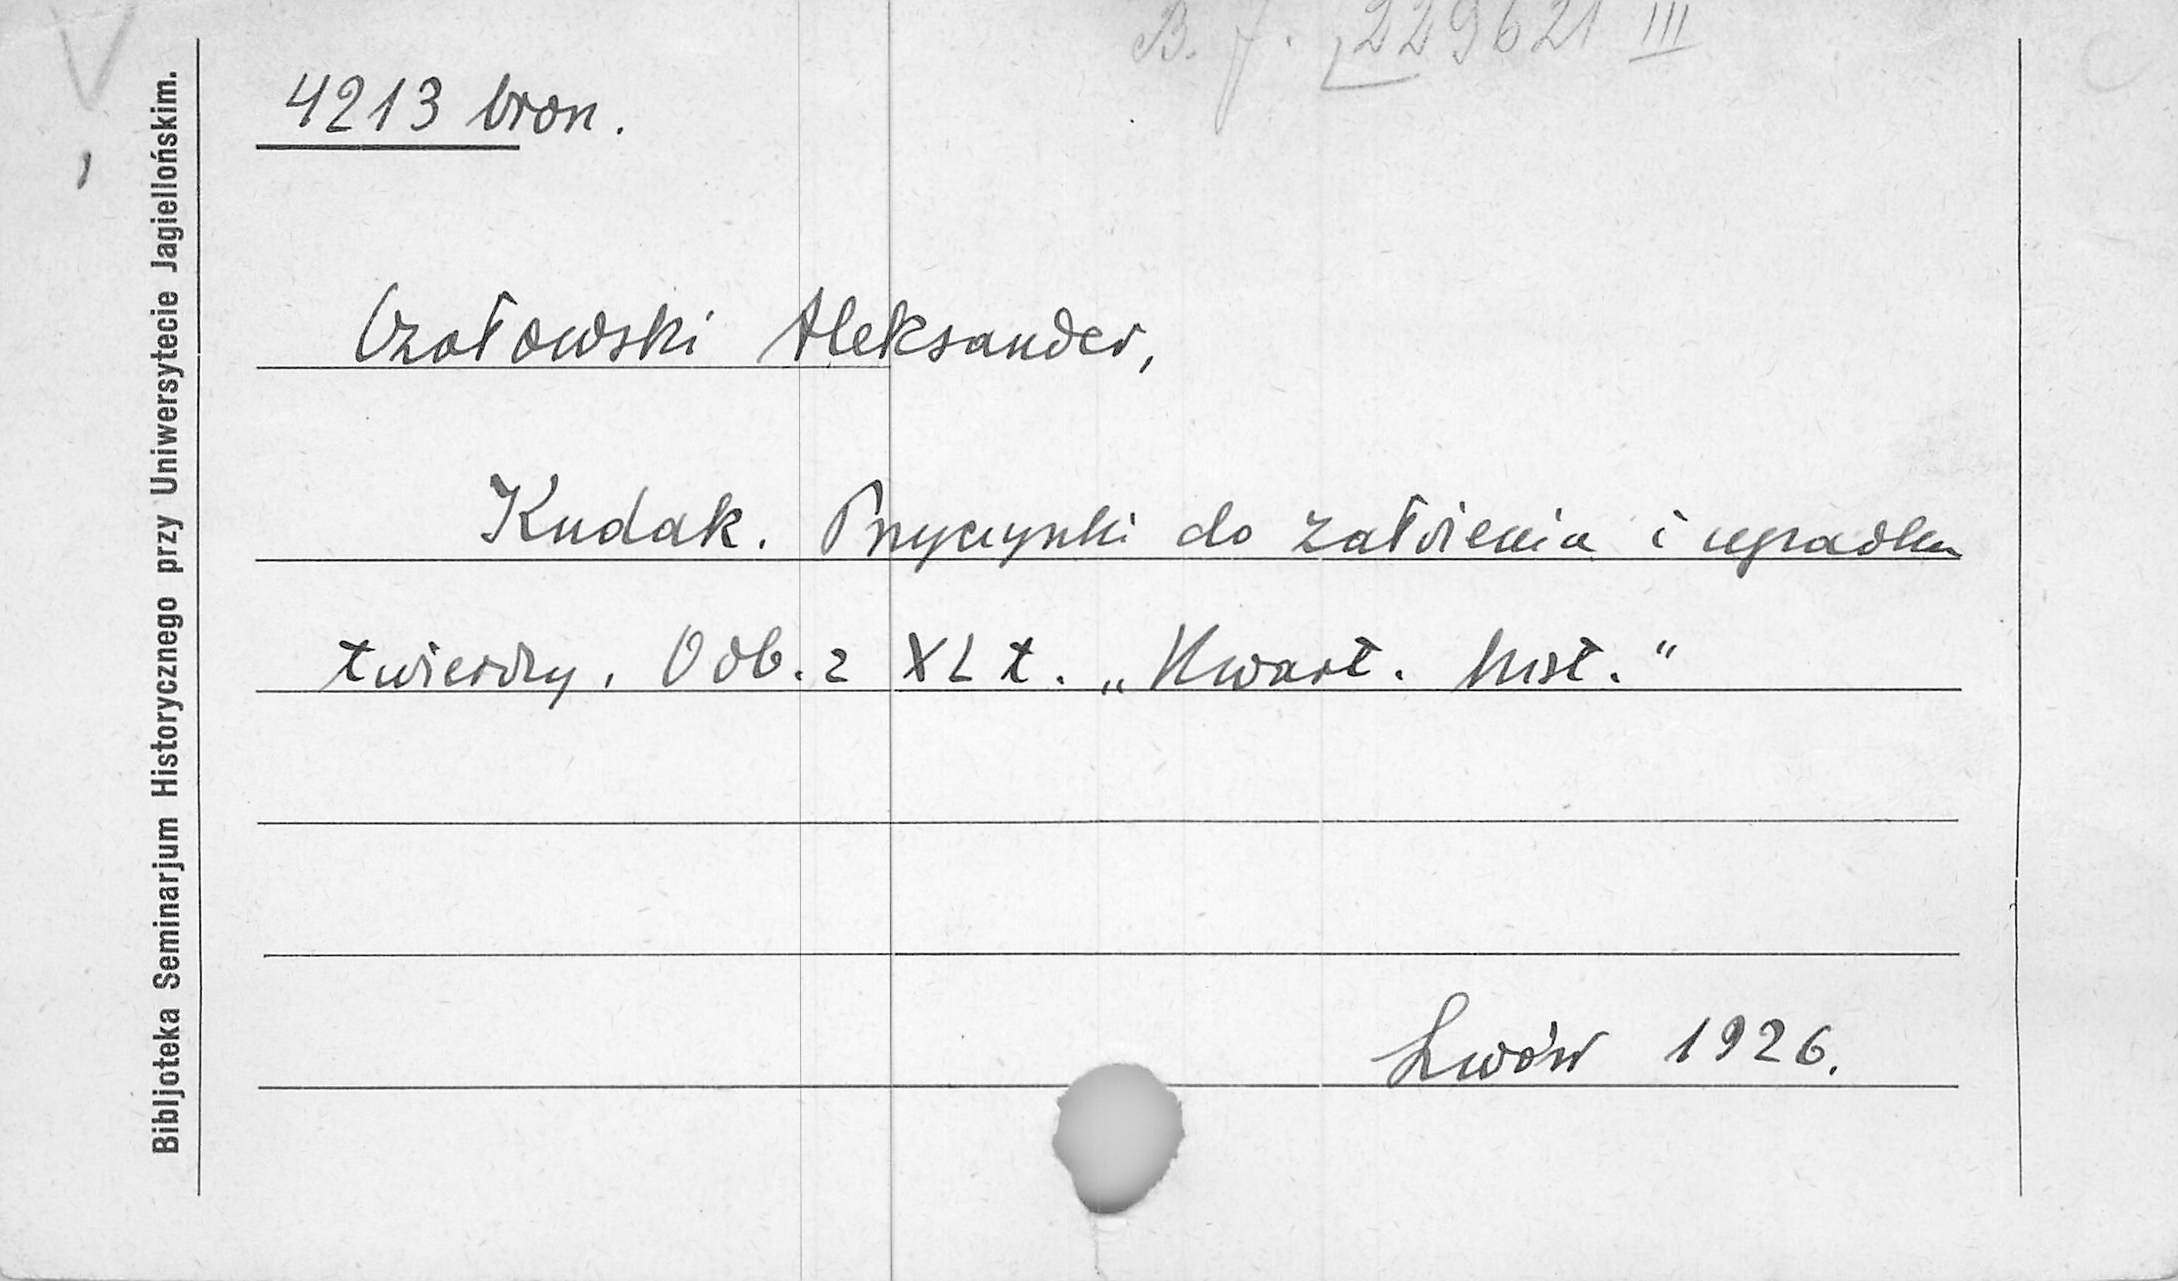 B. J. 229621 III
4213 bron.
Czołowski Aleksander,
Kudak. Przyczynki do założenia i upadku
twierdzy. Odb. z XL t. „Kwart. hist."
Lwów 1926.
Bibljoteka Seminarjum Historycznego przy Uniwersytecie Jagiellońskim.